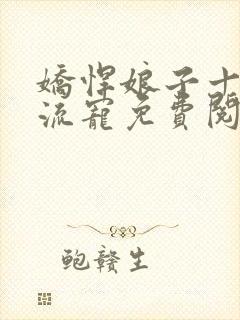 嬌悍娘子十
流寵免費閱
鲍赣生